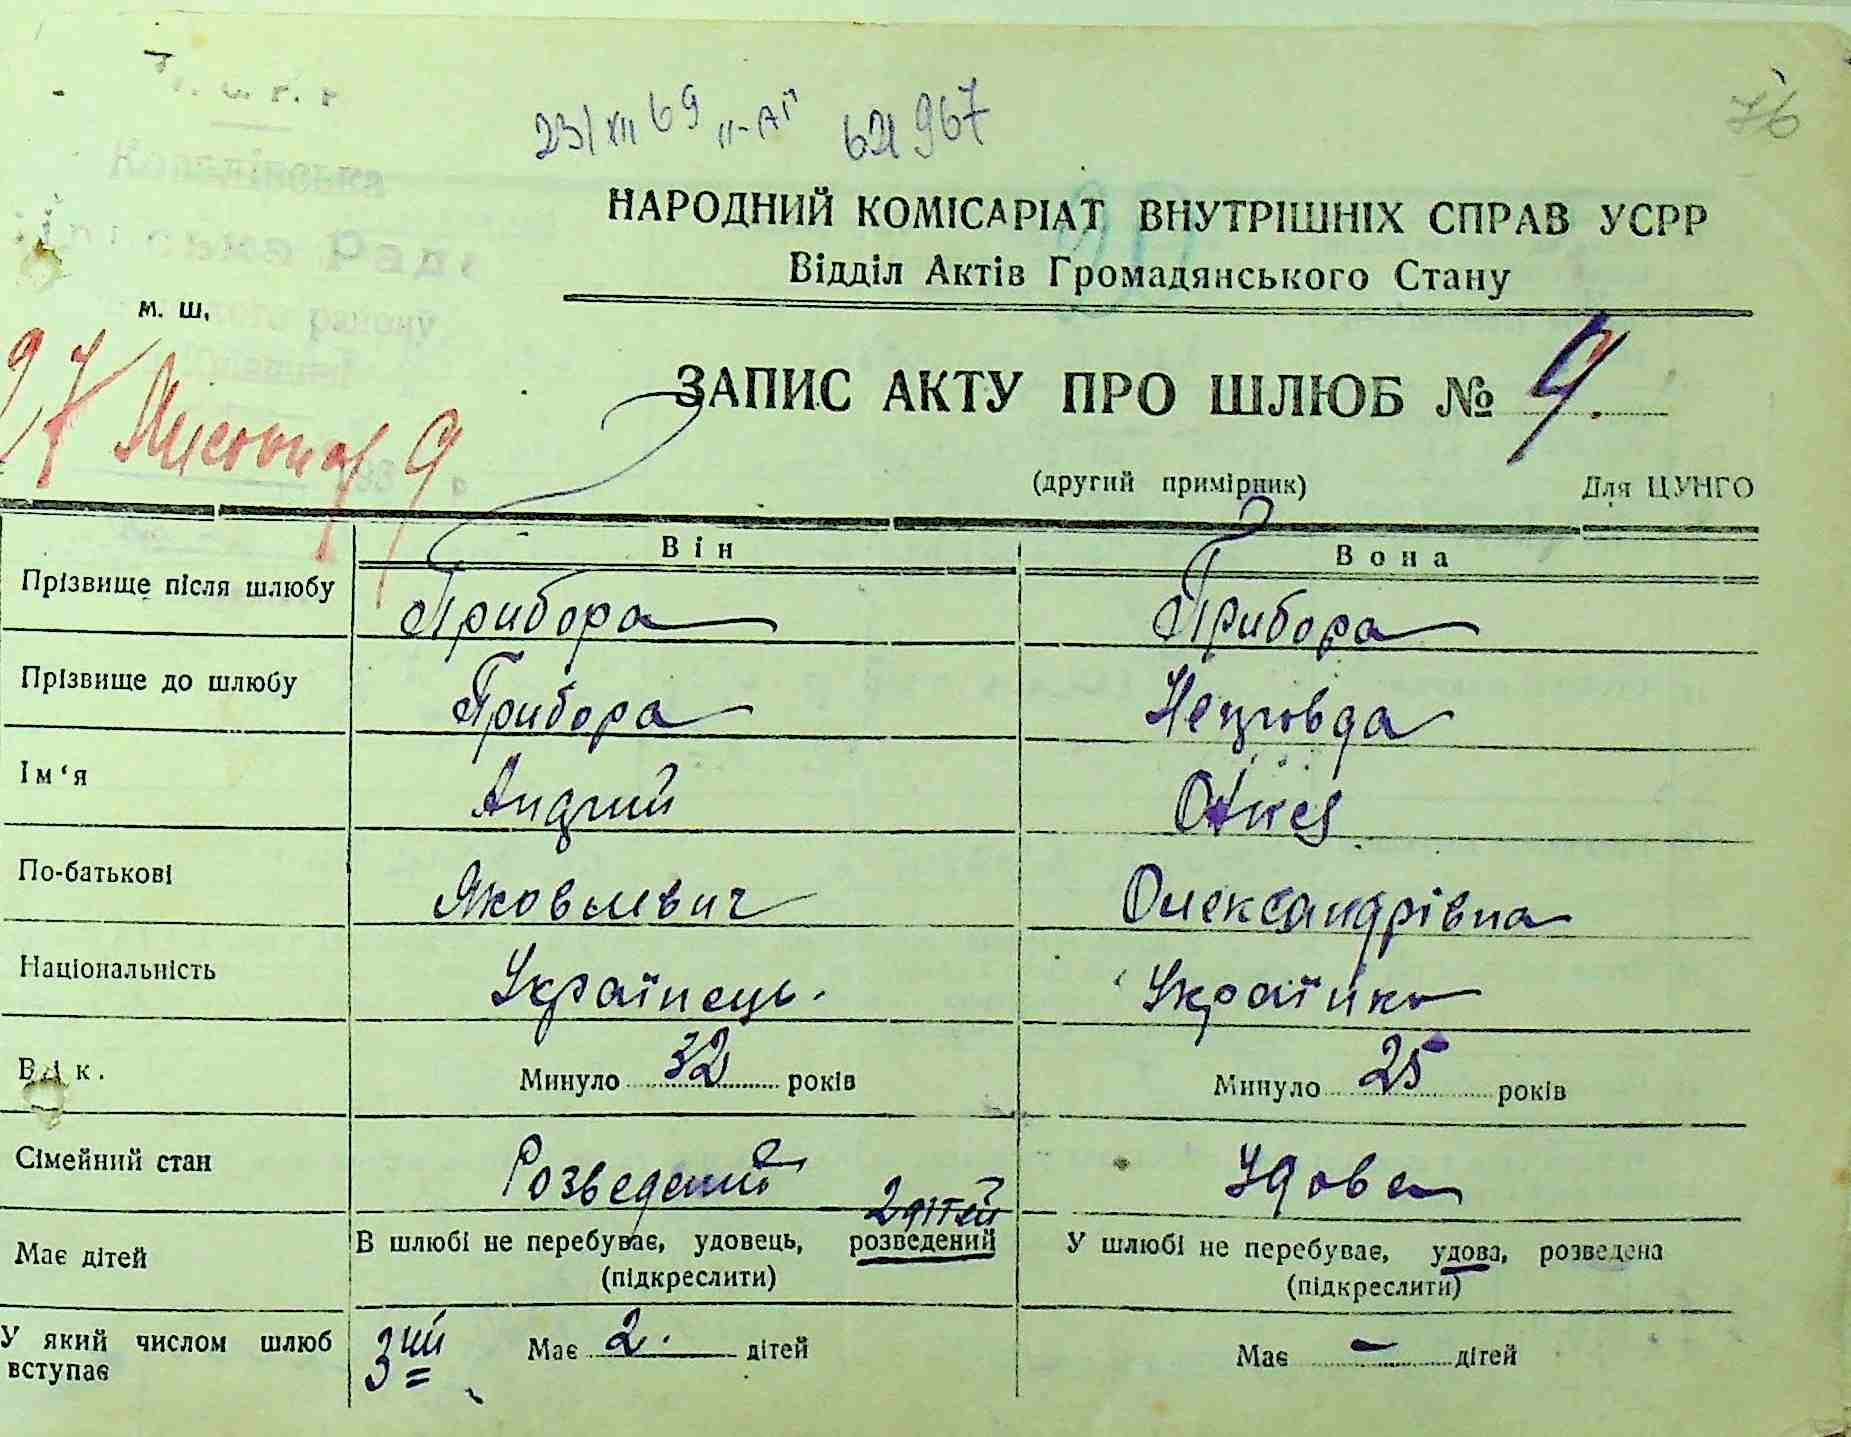 23/XII 69 II-АГ 621967
76
Ковалінська
Рада
району
НАРОДНИЙ КОМІСАРІАТ ВНУТРІШНІХ СПРАВ УСРР
Відділ Актів Громадянського Стану
м. ш.
27
9
ЗАПИС АКТУ ПРО ШЛЮБ № 9.
(другий примірник) Для ЦУНГО
Він Вона
Прізвище після шлюбу Прибора Прибора
Прізвище до шлюбу Прибора
Ім‘я Андрий
По-батькові Яковлевич Олександрівна
Національність Українець. Українка
Вік. Минуло 32 років Минуло 25 років
Сімейний стан Розведений Удова
2 дітей
Має дітей В шлюбі не перебуває, удовець, розведений У шлюбі не перебуває, удова, розведена
(підкреслити) (підкреслити)
У який числом шлюб вступає 3ий Має 2. дітей Має – дітей